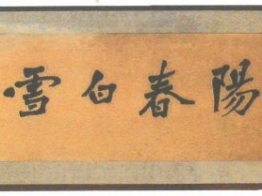 陽春白雪